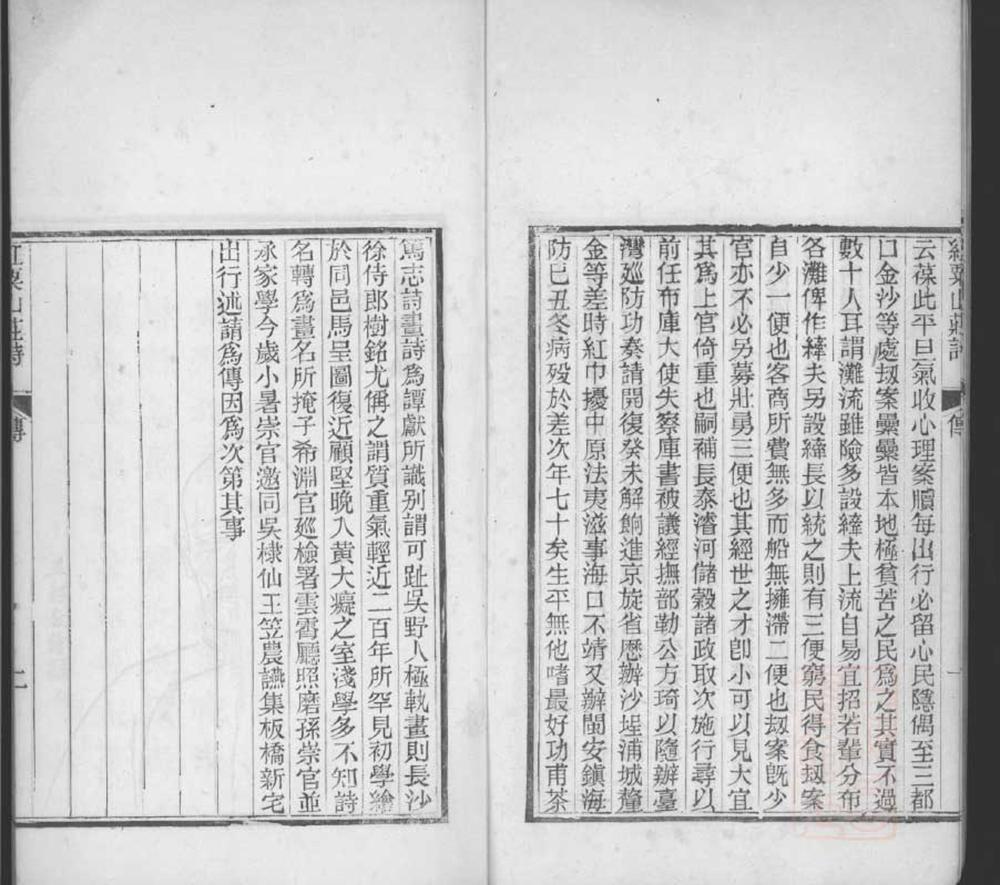 紅粟山莊詩
傳
一
云葆此平旦氣收心理案牘每出行必留心民隱偶至三都
口金沙等處刼案纍纍皆本地極貧苦之民為之其實不過
數十人耳謂灘流雖險多設縴夫上流自易宜招若輩分布
各灘俾作縴夫另設縴長以統之則有三便窮民得食刼案
自少一便也客商所費無多而船無擁滯二便也刼案旣少
官亦不必另募壯勇三便也其經世之才卽小可以見大宜
其為上官倚重也嗣補長泰濬河儲穀諸政取次施行尋以
前任布庫大使失察庫書被議經撫部勒公方琦以隨辦臺
灣廵防功奏請開復癸未解餉進京旋省歷辦沙埕浦城釐
金等差時紅巾擾中原法夷滋事海口不靖又辦閩安鎮海
防已丑冬病殁於差次年七十矣生平無他嗜最好功甫茶
篤志詩畫詩為譚獻所識别謂可趾吳野人極執畫則長沙
徐侍郎樹銘尤偁之謂質重氣輕近二百年所罕見初學繪
於同邑馬呈圖復近顧堅晚入黃大癡之室淺學多不知詩
名轉為畫名所掩子希淵官廵檢署雲霄廳照磨孫崇官並
承家學今歲小暑崇官邀同吳棣仙王笠農讌集板橋新宅
出行述請為傳因為次第其事
紅粟山莊詩
傳
二